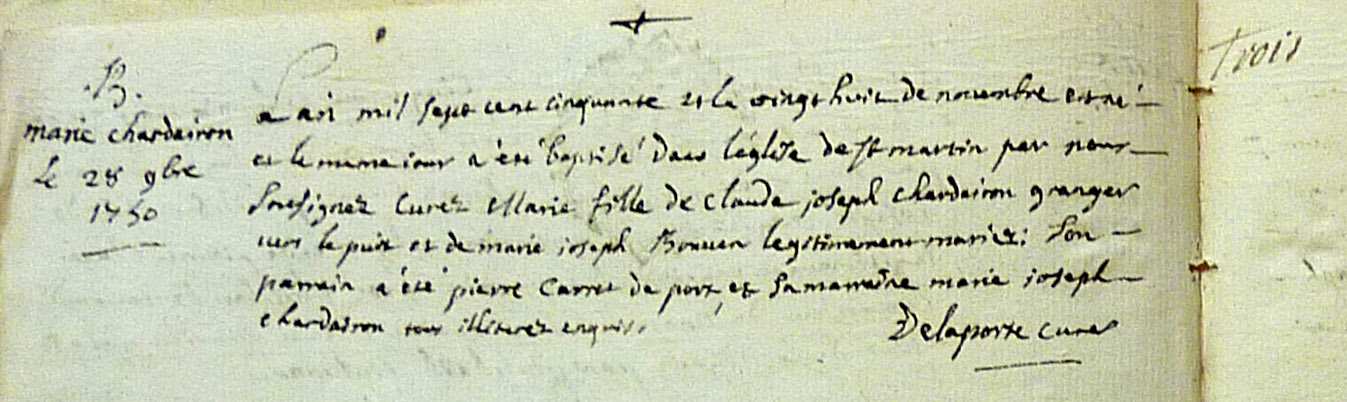 .B.
marie chardairon
le 28 9bre
1750
L'an mil sept cent cinquante et le vingt huit de novembre est né
et le meme iour a été baptisé dans l'église de st martin par nous
soussignez curez Marie fille de claude joseph chardairon granger
vers le puit et de marie joseph legitimement mariez; son
parrain a été pierre Carret de port, et sa marraine marie joseph
chardairon tous illiterez enquis.
Delaporte curez
trois